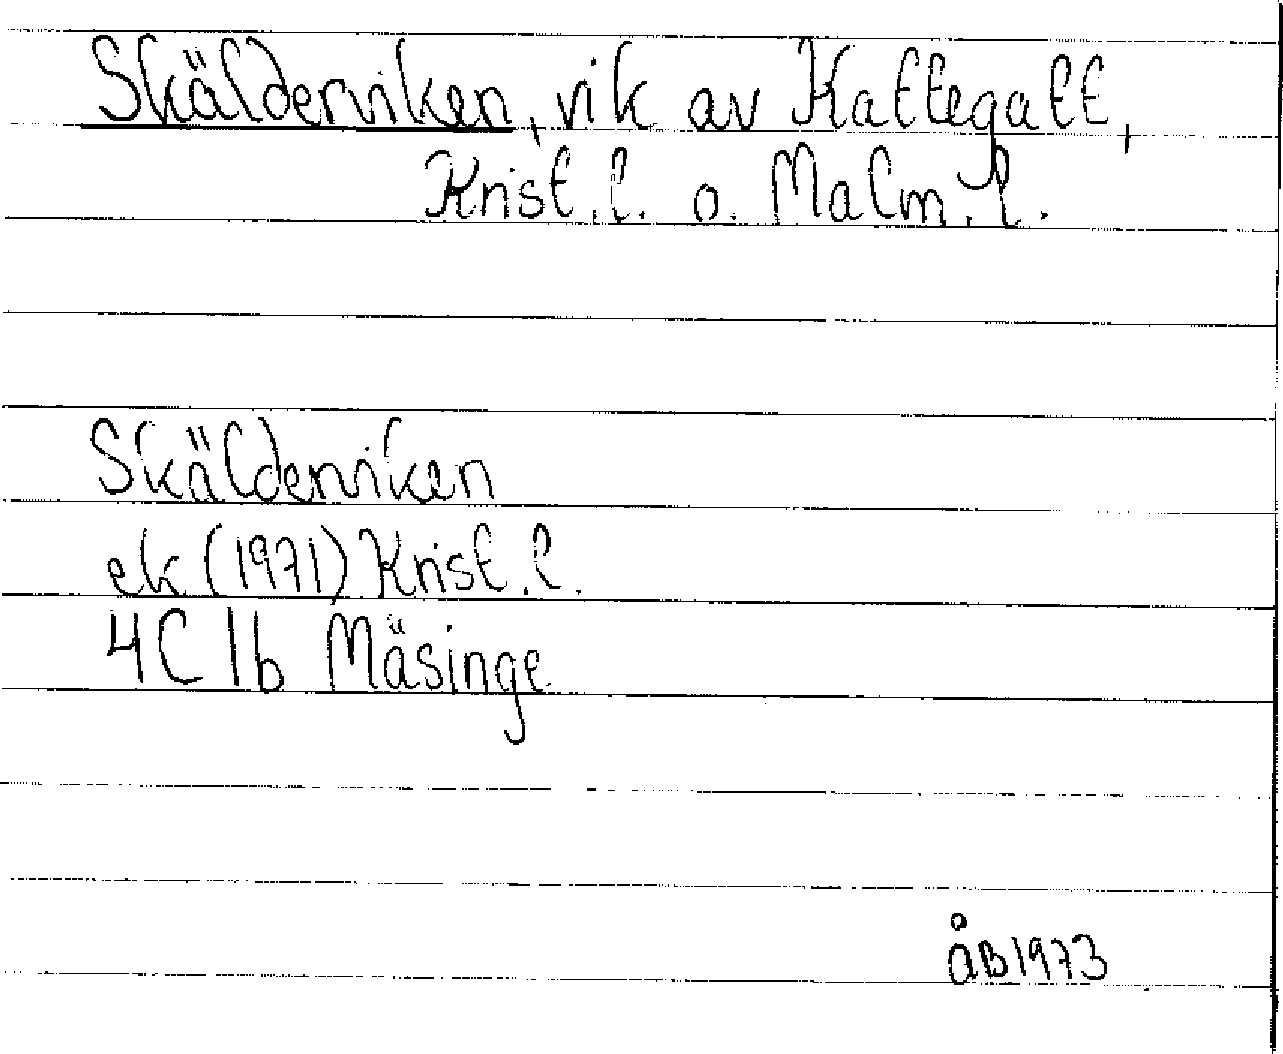 Skälderviken, vik av Kattegatt,
Krist.l. o. Malm.l.
Skälderviken
ek (1971) Krist.l.
4C 1b Mäsinge
ÅB 1973